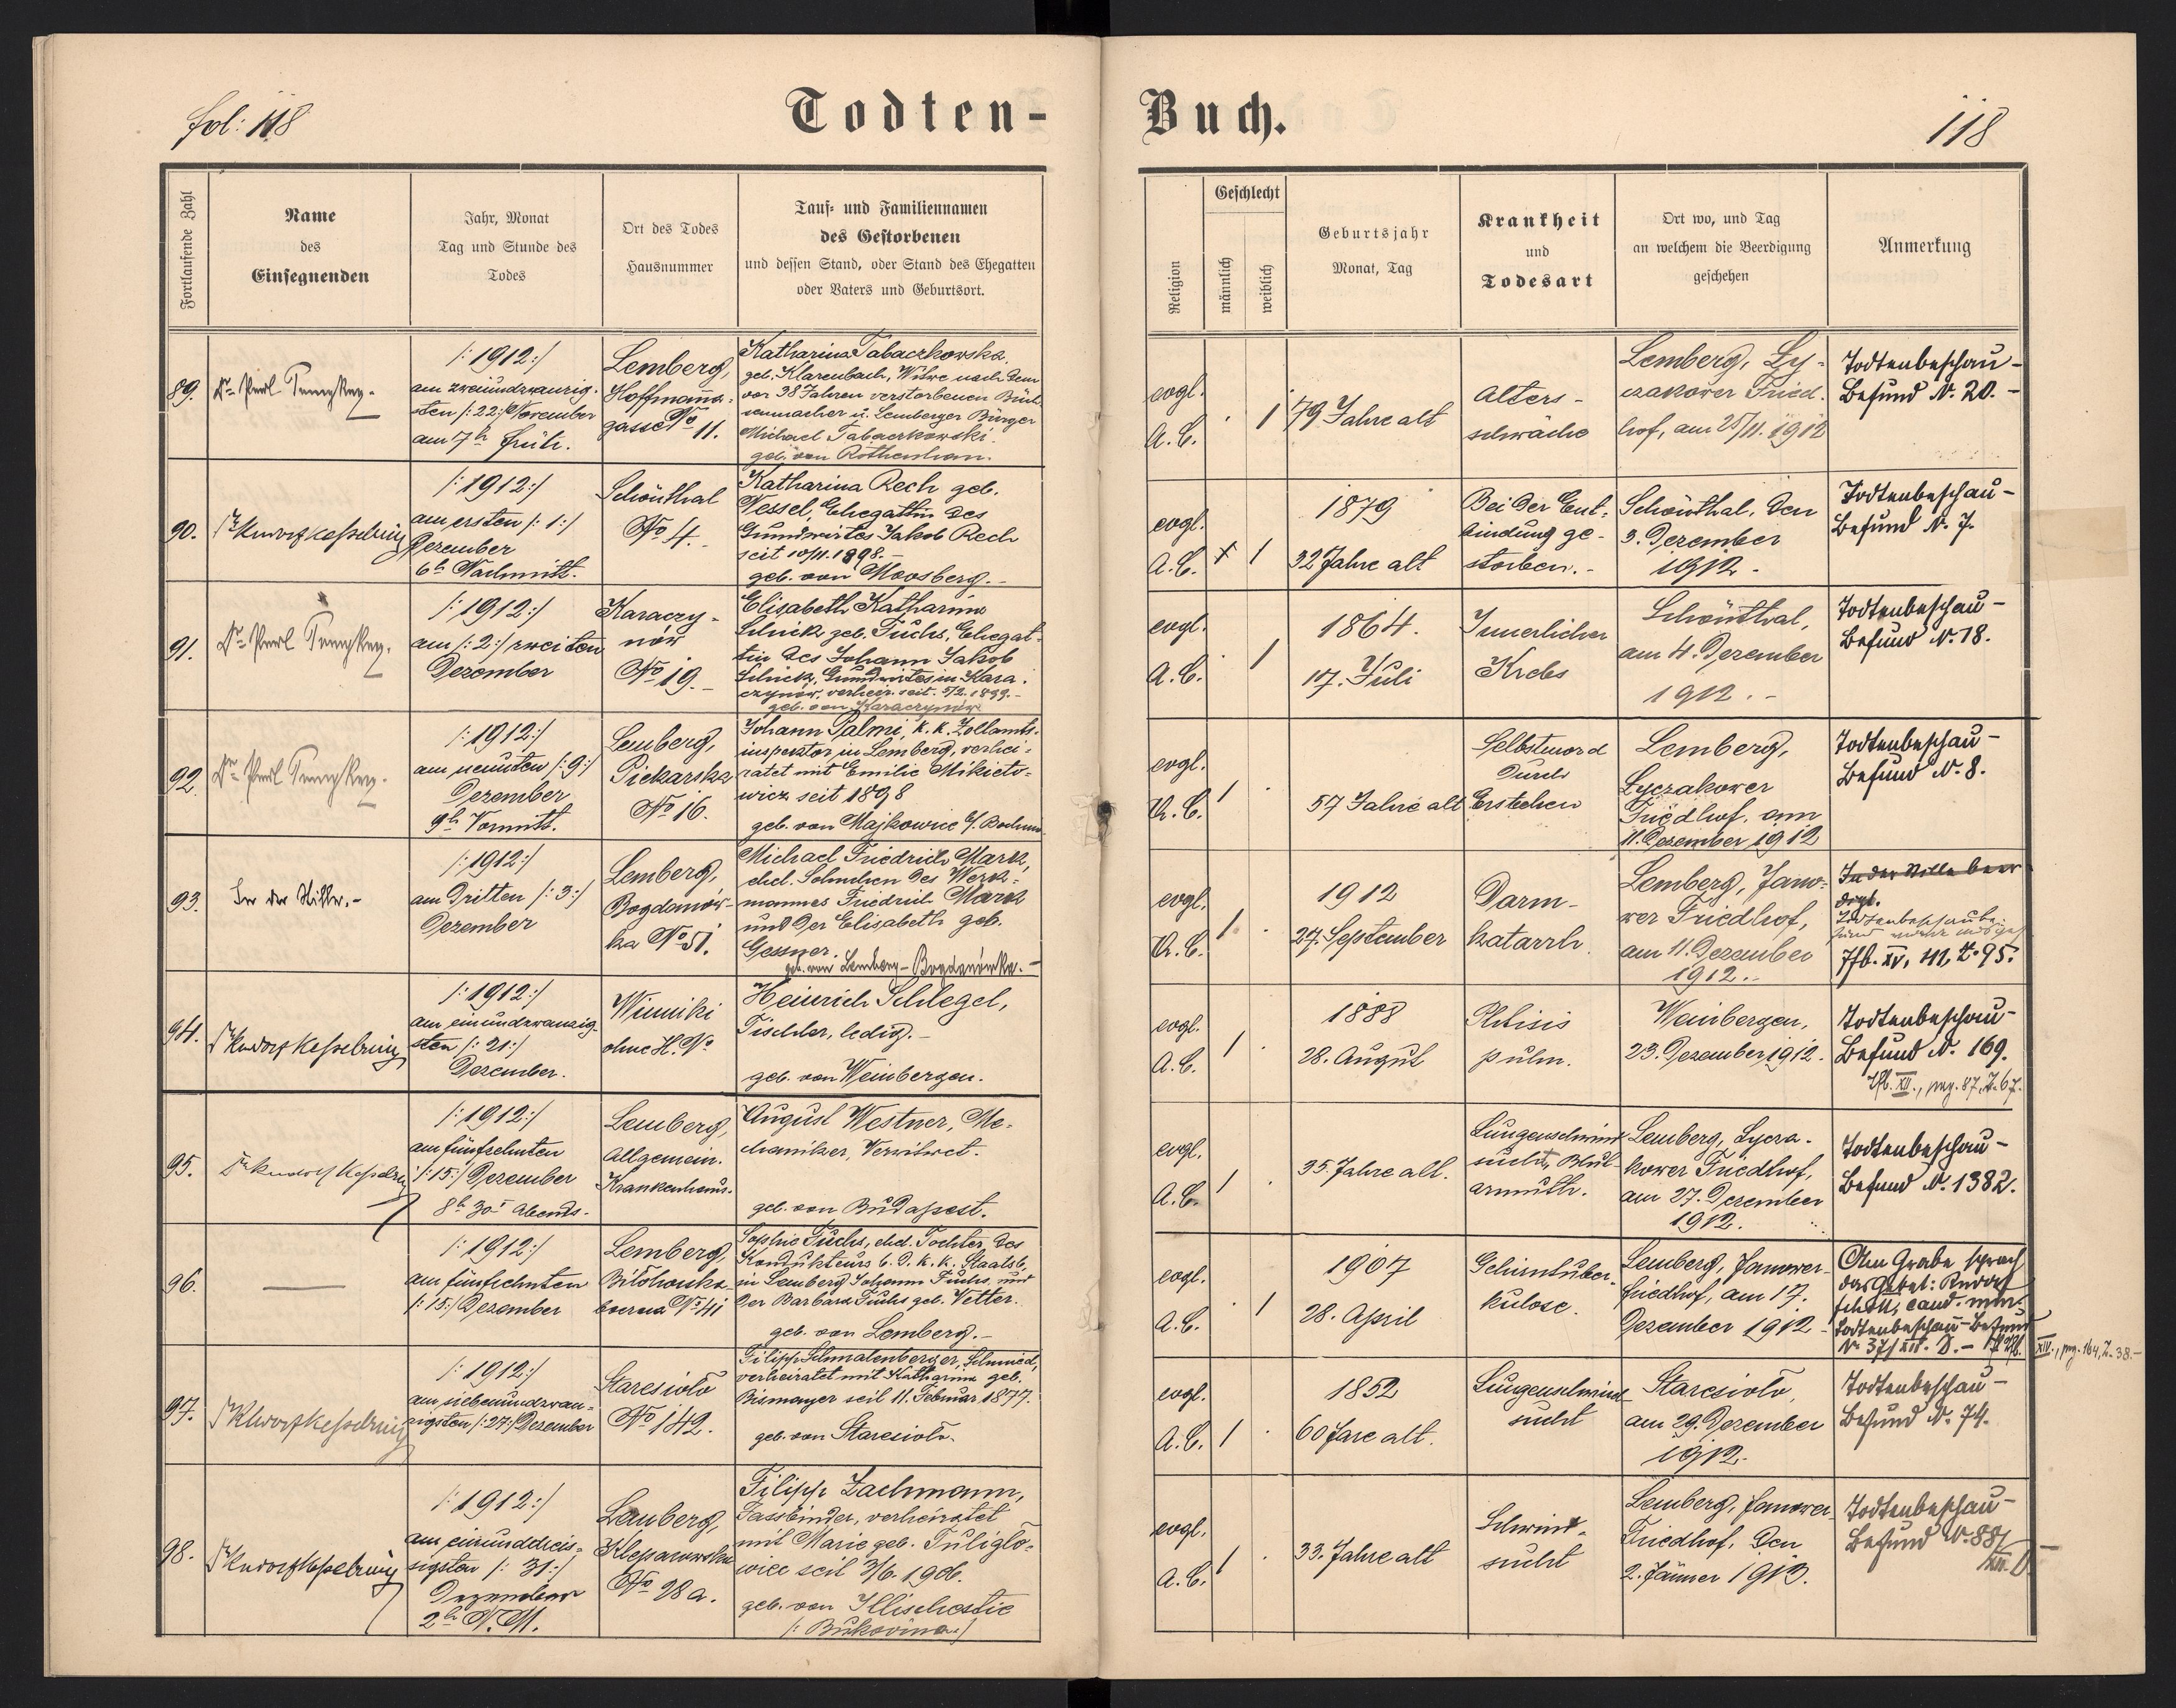 fol: 118
Todten-
Buch.
118
Fortlaufende Zahl
Name
des
Einsegnenden
Jahr, Monat
Tag und Stunde des
Todes
Ort des Todes
Hausnummer
Tauf- und Familiennamen
des Gestorbenen
und dessen Stand, oder Stand des Ehegatten
oder Vaters und Geburtsort.
Religion
Geschlecht
männlich
weiblich
Geburtsjahr
Monat, Tag
Krankheit
und
Todesart
Ort wo, und Tag
an welchem die Beerdigung
geschehen
Anmerkung
89.
/: 1912 :/
am zweiundzwanzig-
sten /: 22:/ November
am 7h früh.
Lemberg,
Hoffmanna-
gasse No 11.
Katharina Tabaczkowska,
geb. Klarenbach, Witwe nach dem
vor 38 Jahren verstorbenen Büch-
senmacher u. Lemberger Bürger
Michael Tabaczkowski.
geb. von Rothenhan.
evgl.
A.C.
1
79 Jahre alt
Alters-
schwäche
Lemberg, Ly-
czakower Fried-
hof, am 25/11. 1912
Todtenbeschau-
Befund N. 20.-
90.
/: 1912 :/
am ersten /: 1:/
Dezember
6h Nachmitt.
Schönthal
No 4.
Katharina Rech geb.
Wessel, Ehegattin des
Grundwirtes Jakob Rech
seit 10/11. 1898.-
geb. von Moosberg.-
evgl.
A.C.
+ 1
1879
32 Jahre alt
Bei der Ent-
bindung ge-
storben.-
Schönthal, den
3. Dezember
1912.-
Todtenbeschau-
Befund N. 7.
91.
/: 1912 :/
am /: 2:/ zweiten
Dezember
Karaczy-
nów
No 19.-
Elisabeth Katharina
Schick geb. Fuchs, Ehegat-
tin des Johann Jakob
Schick, Grundwirtes in Kara-
czynów, verheir. seit 5/2. 1899.-
geb. von Karaczynów
evgl.
A.C.
1
1864.
17. Juli
Innerlicher
Krebs
Schönthal,
am 4. Dezember
1912.-
Todtenbeschau-
Befund N. 18.
92.
/: 1912 :/
am neunten /: 9:/
Dezember
9h Vormitt.
Lemberg,
Piekarska
No 16.
Johann Palmi, k. k. Zollamts-
inspektor in Lemberg, verhei-
ratet mit Emilie Mikieto-
wicz seit 1898
geb. von Majkowce
evgl.
A.C.
1
57 Jahre alt
Selbstmord
durch
Erstechen
Lemberg,
Lyczakower
Friedhof, am
11. Dezember 1912
Todtenbeschau-
Befund N. 8.
93.
In der Stille.-
/: 1912 :/
am dritten /: 3:/
Dezember
Lemberg,
Bogdanów-
ka No 51.
Michael Friedrich Mark,
ehel. Söhnchen des Werk-
mannes Friedrich Mark
und der Elisabeth geb.
Gessner.
geb. von Lemberg-Bogdanówka.-
evgl.
A.C.
1
1912
27. September
Darm-
katarrh
Lemberg, Jano-
wer Friedhof,
am 11. Dezember
1912.
In der Stille beer
digt.
Tfb. XV, 112, Z. 95.
94.
/: 1912 :/
am einundzwanzig-
sten /: 21:/
Dezember.
Winniki
ohne H. No
Heinrich Schlegel,
Tischler, ledig.-
geb. von Weinbergen.
evgl.
A.C.
1
1888
28. August
Phtisis
pulm.
Weinbergen,
23. Dezember 1912.
Todtenbeschau-
Befund N. 169.
Tfb. XII., pag. 87, Z. 67.
95.
/: 1912 :/
am fünfzehnten
/: 15:/ Dezember
8h 30' Abends.
Lemberg,
Allgemein.
Krankenhaus.
August Westner, Me-
chaniker, Verwitwet.
geb. von Budapest.
evgl.
A.C.
1
35 Jahre alt.
Lungenschwind-
sucht, Blut-
armuth.
Lemberg, Lycza-
kower Friedhof,
am 27. Dezember
1912.
Todtenbeschau-
Befund N. 1382.
96.
/: 1912 :/
am fünfzehnten
/: 15:/ Dezember
Lemberg,
Bilohorska
boczna No 41
Sophie Fuchs, ehel. Tochter des
Kondukteurs b. d. k. k. Staatsb.
in Lemberg Johann Fuchs und
der Barbara Fuchs geb. Vetter.
geb. von Lemberg.-
evgl.
A.C.
1
1907
28. April
Gehirntuber-
kulose.
Lemberg, Janower-
friedhof, am 17.
Dezember 1912.-
Am Grabe sprach
das Gebet: Rudolf
cand. min.
Todtenbeschau-Befund
N. 371 XII. D.-
XIV., pag. 164, Z. 38.-
97.
/: 1912 :/
am siebenundzwan-
zigsten /: 27:/ Dezember
Staresioło
No 142.
Filipp Schmalenberger, Schmied,
verheiratet mit Katharina geb.
Bismayer seit 11. Februar 1877.
geb. von Staresioło.
evgl.
A.C.
1
1852
60 Jare alt.
Lungenschwind-
sucht
Staresioło,
am 29. Dezember
1912.
Todtenbeschau-
Befund N. 74.
98.
/: 1912 :/
am einunddreis-
sigsten /: 31:/
Dezember
2h N.M.
Lemberg,
Kleparowska
No 28a.
Filipp Zachmann,
Fassbinder, verheiratet
mit Marie geb. Tuliglo-
wicz seit 3/6. 1906.
geb. von Illischestie
/: Bukowina:/
evgl.
A.C.
1
33. Jahre alt
Schwind-
sucht
Lemberg, Janower
Friedhof, den
2. Jänner 1913.
Todtenbeschau-
Befund N. 88/
XII. D.